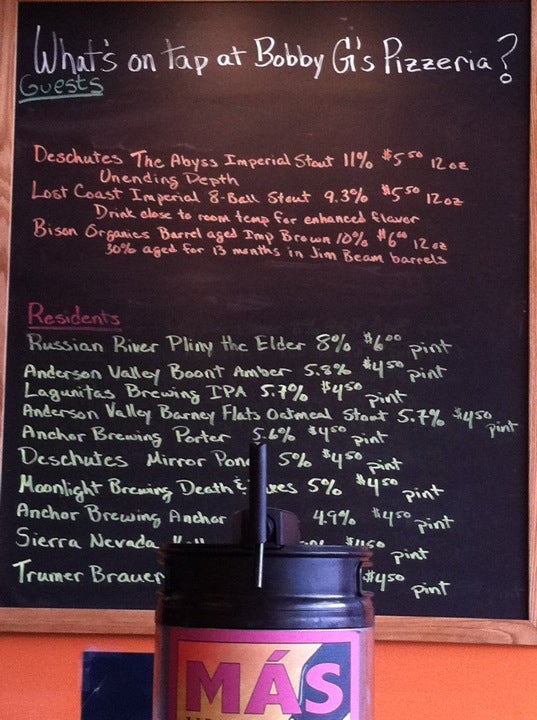 What's on tap at Bobby G's Pizzeria?
Guests
Deschutes The Abyss Imperial Stout 11% $5.50 12 oz
Unending Depth
Lost Coast Imperial 8-Ball Stout 9.3% $5.50 12 oz
Drink close to room temp for enhanced flavor
Bison Organics Barrel aged Imp Brown 10% $6.00 12 oz
30% aged for 13 months in Jim Beam barrels
Residents
Russian River Pliny the Elder 8% $6.00 pint
Anderson Valley Boont Amber 5.8% $4.50 pint
Lagunitas Brewing IPA 5.7% $4.50 pint
Anderson Valley Barney Flats Oatmeal Stout 5.7% $4.50 pint
Anchor Brewing Porter 5.6% $4.50 pint
Deschutes Mirror Pond 5% $4.50 pint
Moonlight Brewing Death & 5% $4.50 pint
Anchor Brewing Anchor 4.9% $4.50 pint
Sierra Nevada $4.50 pint
Trumer Brauer $4.50 pint
MÁS